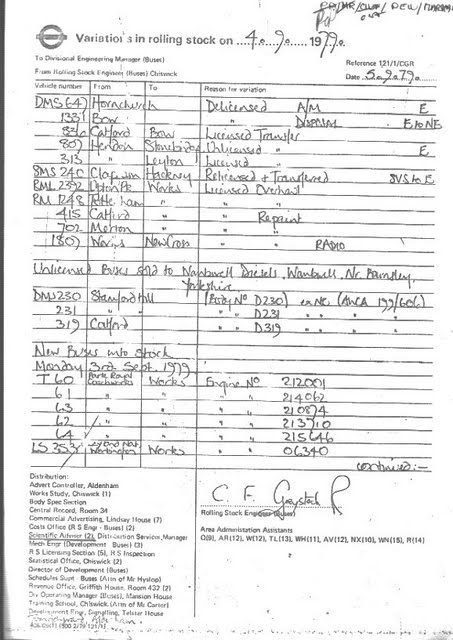 Variations in rolling stock on 4. 9. 1979.
To Divisional Engineering Manager (Buses)
From Rolling Stock Engineer (Buses) Chiswick
Reference 121/1/CGR
Date 5.9.79.
Vehicle number From To Reason for variation
DMS 647 Hornchurch Delicensed A/M E
1331 Bow " Disposal E to NE
836 Catford Bow Licensed Transfer
807 Hendon Stonebridge Unlicensed " E
313 " Leyton Licensed "
SMS 240 Clapham Hackney Relicensed & Transferred SVS to E
RML 2392 Upton Pk Works Licensed Overhaul
RM 1248 Tottenham " " "
415 Catford " " Repaint
702 Merton " " "
1807 Works New Cross " " RADIO
Unlicensed Buses sold to Wombwell Diesels, Wombwell, Nr. Barnsley,
Yorkshire
DMS 230 Stamford Hill (Body No D230) ex NE (AMCA 199/606)
231 " " D231 " " "
319 Catford " D319 " " "
New Buses into Stock
Monday 3rd Sept. 1979
T 60 Park Royal Coachworks Works Engine No 212001
61 " " " 214062
63 " " " 210874
62 " " " 213710
64 " " " 215646
LS 353 Leyland Nat. Workington Works " " 06340
continued:-
Distribution:
Advert Controller, Aldenham
Works Study, Chiswick (1)
Body Spec Section
Central Record, Room 34
Commercial Advertising, Lindsay House (7)
Costs Office (R S Engr - Buses) (2)
Scientific Adviser (2), Distribution Services Manager
Mech Engr (Development - Buses) (3)
R S Licensing Section (5), R S Inspection
Statistical Office, Chiswick (2)
Director of Development (Buses)
Schedules Supt - Buses (Attn of Mr Hyslop)
Revenue Office, Griffith House, Room 422 (2)
Div Operating Manager (Buses), Mansion House
Training School, Chiswick (Attn of Mr Carter)
Development Eng, Signalling, Telstar House
C. F.
Rolling Stock Engineer (Buses)
Area Administation Assistants
Q(9), AR(12), W(12), TL(13), WH(11), AV(12), NX(10), WN(15), R(14)